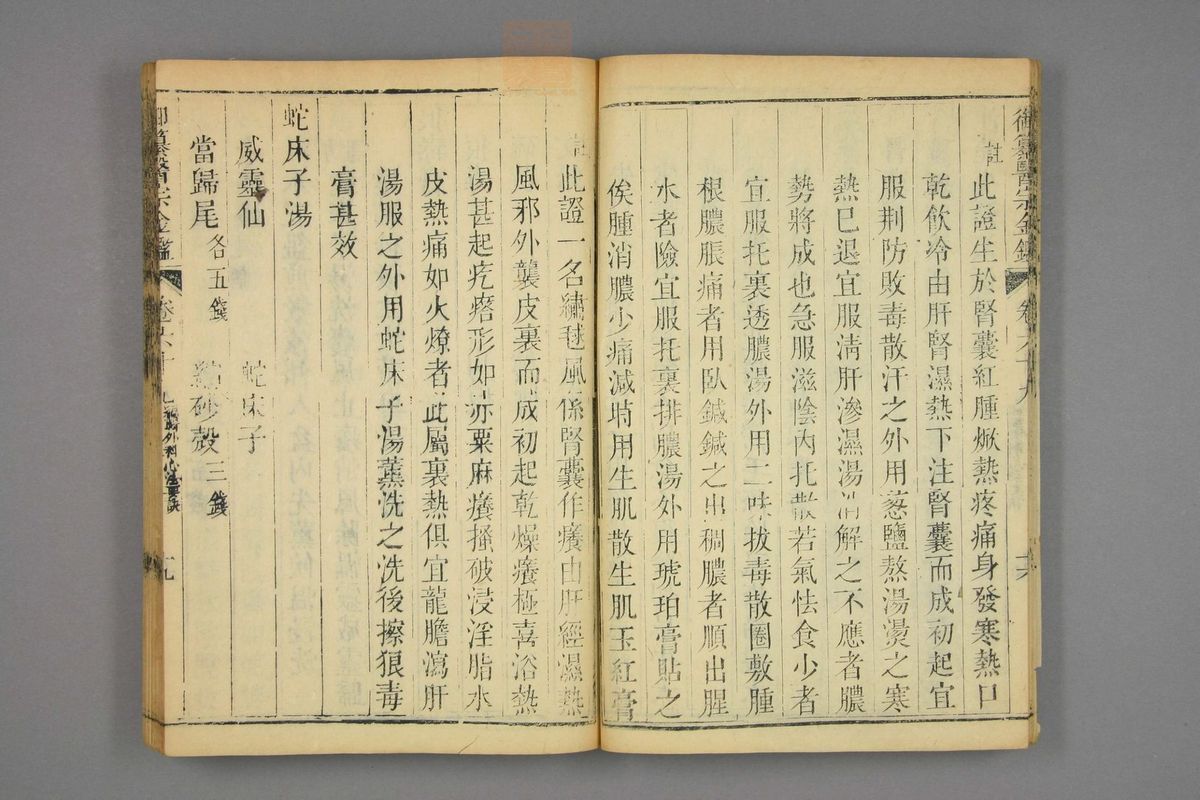 御纂醫宗金鑑 卷六十九 十六
註
此證生於腎囊紅腫焮熱疼痛身發寒熱口
乾飲冷由肝腎濕熱下注腎囊而成初起宜
服荆防敗毒散汗之外用葱鹽熬湯燙之寒
熱巳退宜服淸肝滲濕湯消解之不應者膿
勢將成也急服滋陰內托散若氣怯食少者
宜服托裏透膿湯外用二味拔毒散圈敷腫
根膿脹痛者用臥鍼鍼之出稠膿者順出腥
水者險宜服托裏排膿湯外用琥珀膏貼之
俟腫消膿少痛減時用生肌散生肌玉紅膏
註
此證一名繡毬風係腎囊作癢由肝經濕熱
風邪外襲皮裏而成初起乾燥癢極喜浴熱
湯甚起疙瘩形如赤粟麻癢搔破浸淫脂水
皮熱痛如火燎者此屬裏熱俱宜龍膽瀉肝
湯服之外用蛇床子湯薰洗之洗後擦狼毒
膏甚效
蛇床子湯
威靈仙 蛇床子
當歸尾各五錢 砂殼三錢
御纂醫宗金鑑 卷六十九 外科心法要訣 十九